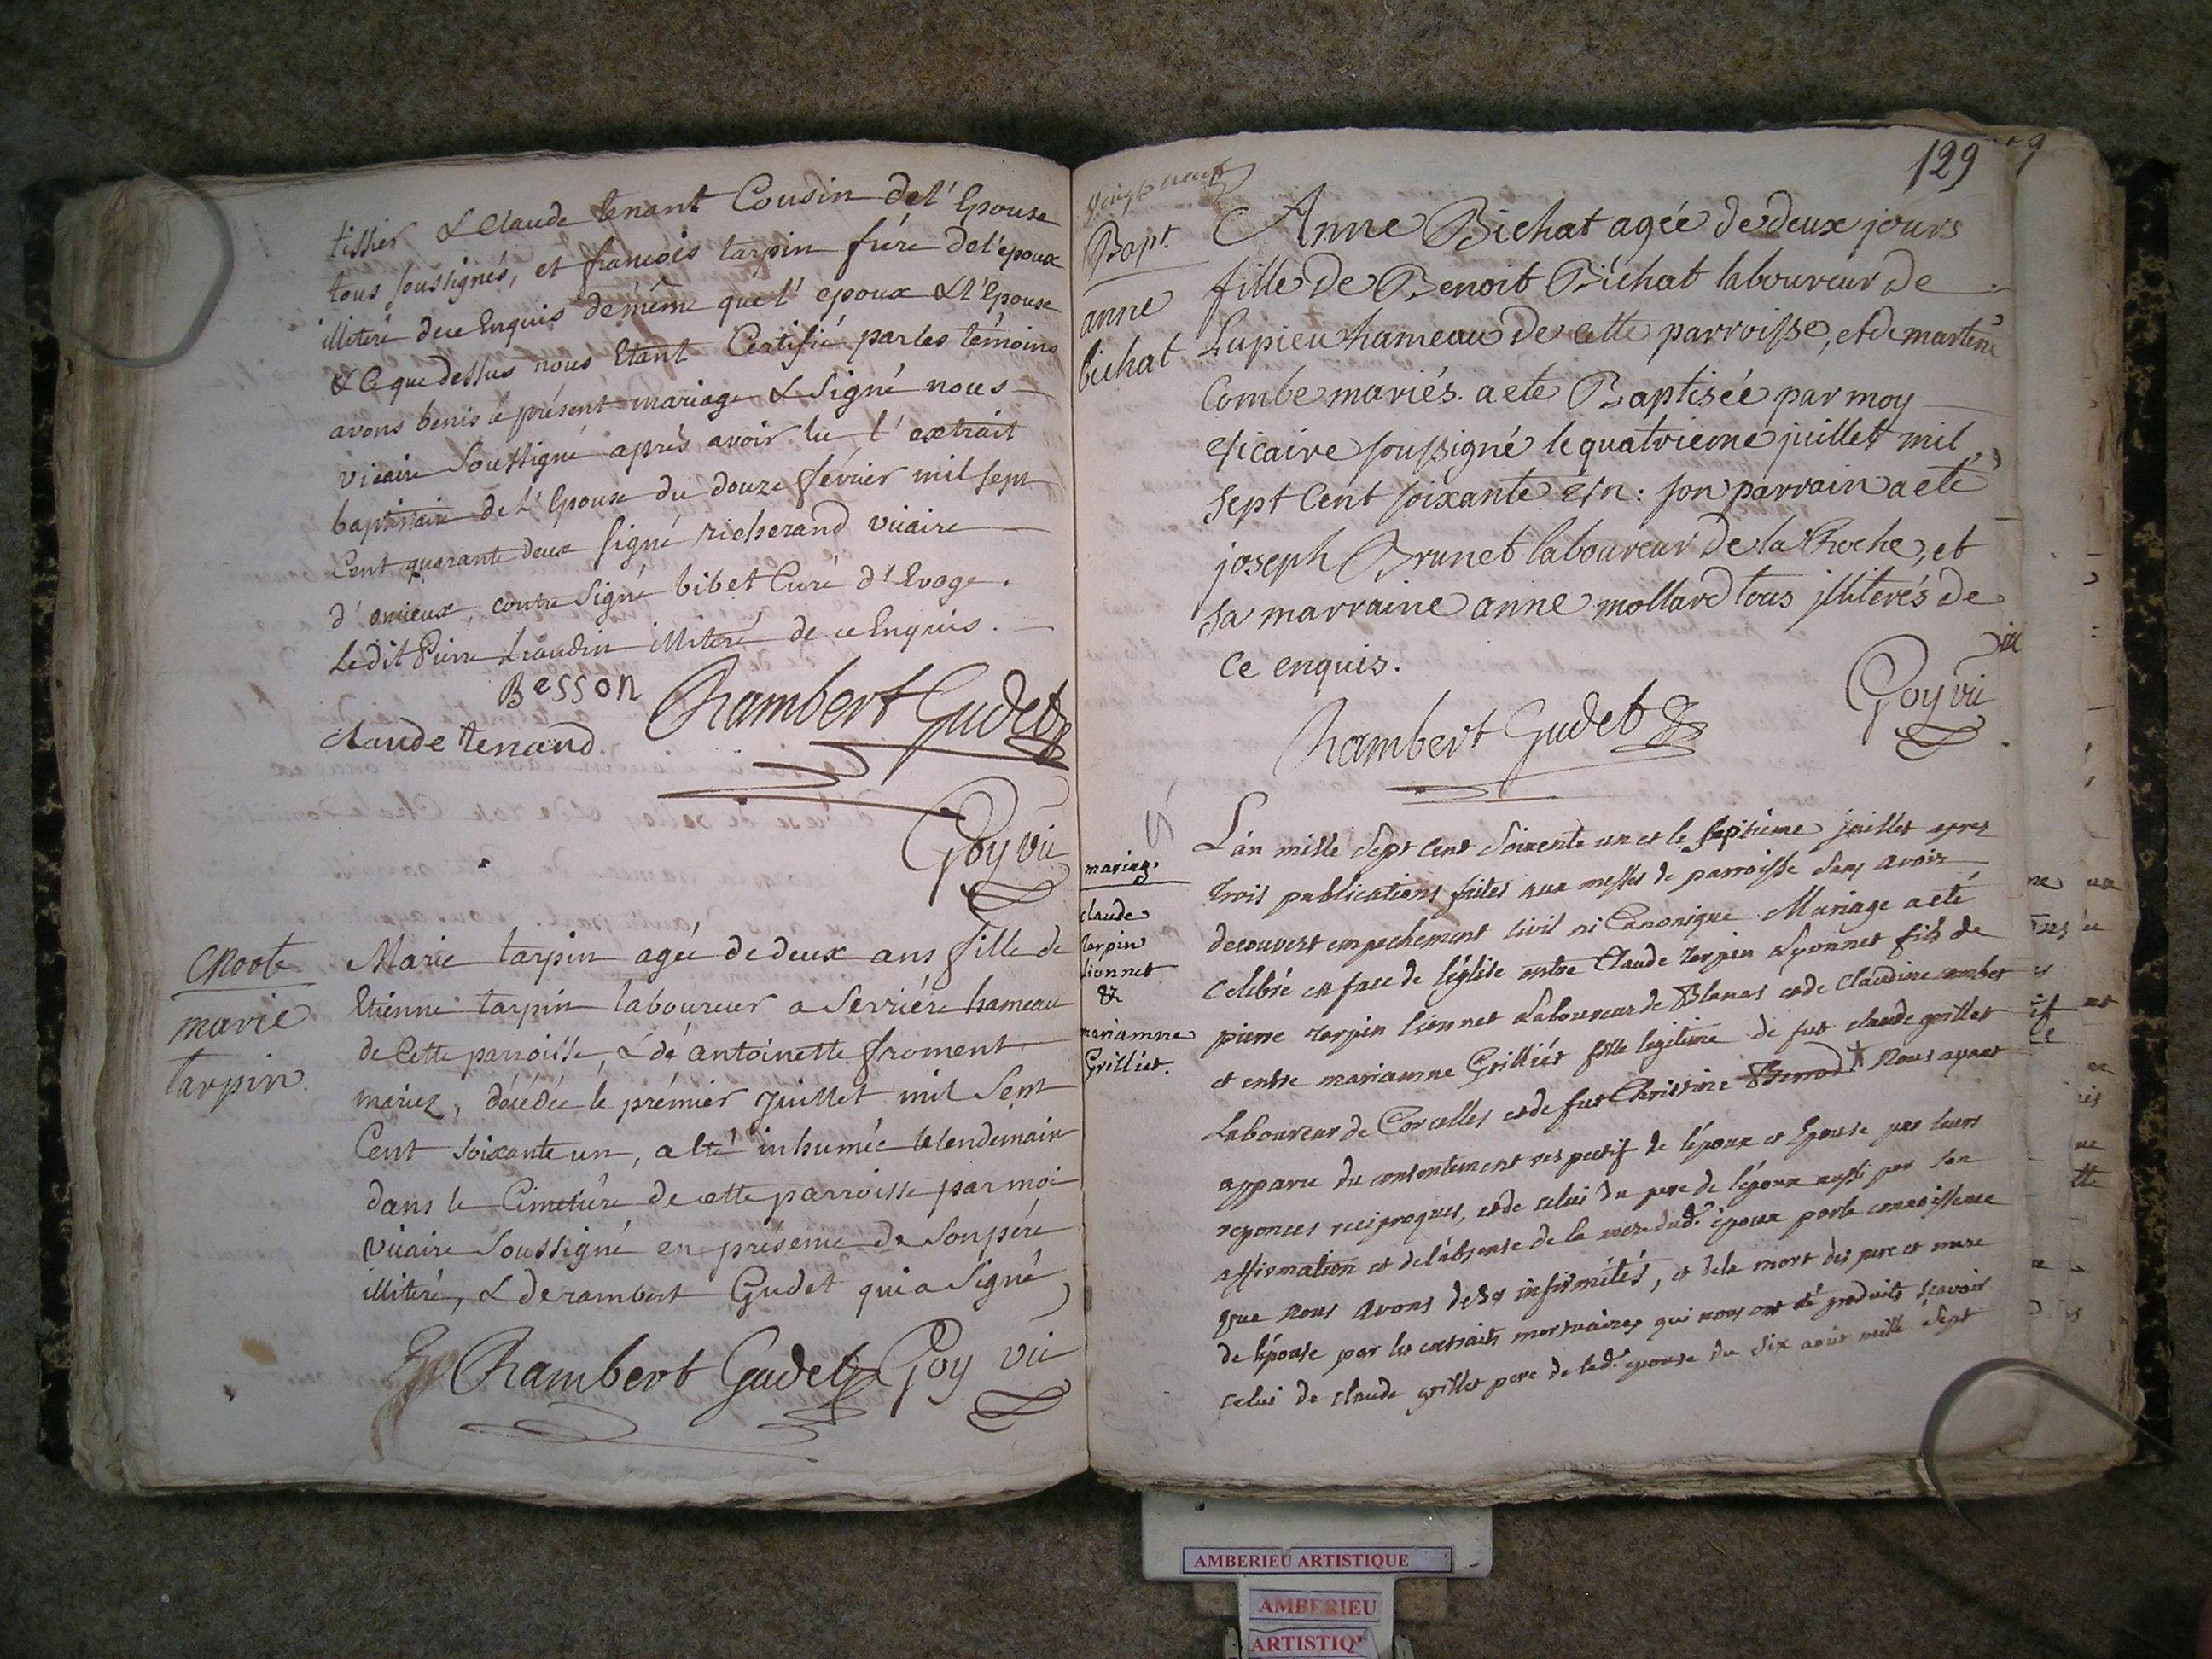 tissier & Claude tenant Cousin de l'Epouse
tous soussignés, et francois tarpin frére de l'epoux
illiteré de ce Enquis de même que l'epoux & l'Epouse
& Ce que dessus nous Etant Certifié par les témoins
avons benis le présent mariage & Signé nous
vicaire Soussigné aprés avoir lu l'extrait
baptistaire de l'Epouse du douze février mil sept
Cent quarante deux signé richerand vicaire
d'onieux, contre Signé bibet Curé d'Evoge.
Ledit Pierre Liaudin illiteré de ce Enquis.
Besson Rambert Gudet
claude tenand
Goy vic
Morte
marie
tarpin.
Marie tarpin agée de deux ans fille de
Etienne tarpin laboureur a Serriére hameau
de Cette parroisse, & de antoinette froment
mariez, décédée le prémier juillet mil Sept
Cent soixante un, a été inhumée le lendemain
dans le Cimetiére de cette parroisse par moi
vicaire Soussigné en présence de Son pére
illiteré, & de rambert Gudet qui a Signé
Rambert Gudet Goy vic
129
vingt neuf
Bapt.
anne
bichat
Anne Bichat agée de deux jours
fille de Benoit Bichat laboureur de
Lupieu hameau de cette parroisse, et de martine
Combe mariés. a eté Baptisée par moy
vicaire soussigné le quatrieme juillet mil
sept Cent soixante un: son parrain a eté
joseph Brunet laboureur de la Roche, et
sa marraine anne mollard tous illiterés de
ce enquis.
Rambert Gudet
Goy vic
mariag.
claude
tarpin
lionnet
&
mariamne
Grilliet.
L'an mille Sept Cent Soixente un et le septieme juillet apres
trois publications faites aux messes de parroisse Sans avoir
decouvert empechement Civil ni Canonique Mariage a eté
Celebré en face de l'église entre Claude tarpin Lyonnet fils de
pierre tarpin lionnet Laboureur de Blanas et de Claudine ambet
et entre mariamne Grilliét fille legitime de fut claude grillet
Laboureur de Corcelles et de fut Christine Nous ayant
apparu du consentement respectif de l'époux et Epouse par leurs
reponces reciproques, et de celui du pere de l'époux aussi par son
affirmation et de l'absense de la mere dud. époux par la connoissance
que nous avons de Ses infirmités, et de la mort des pere et mere
de l'épouse par les extraits mortuaires qui nous ont été produits scavoir
celui de claude grillet pere de lad. epouse du six aout mille Sept
AMBERIEU ARTISTIQUE
AMBERIEU
ARTISTIQ